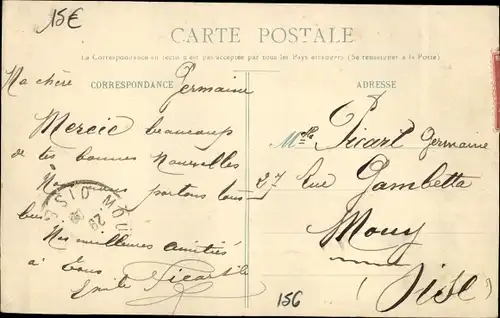 15€
CARTE POSTALE
La Correspondance au recto n'est pas acceptée par tous les Pays étrangers (Se renseigner à la Poste)
CORRESPONDANCE
ADRESSE
Ma chère Germaine
Mercie beaucoup
de tes bonnes Nouvelles
Nous nous portons tous
bien
Nos meilleures amitiés
à tous
Emile Picart
Mlle Picart Germaine
27 Rue Gambetta
Mouy
(Oise)
156